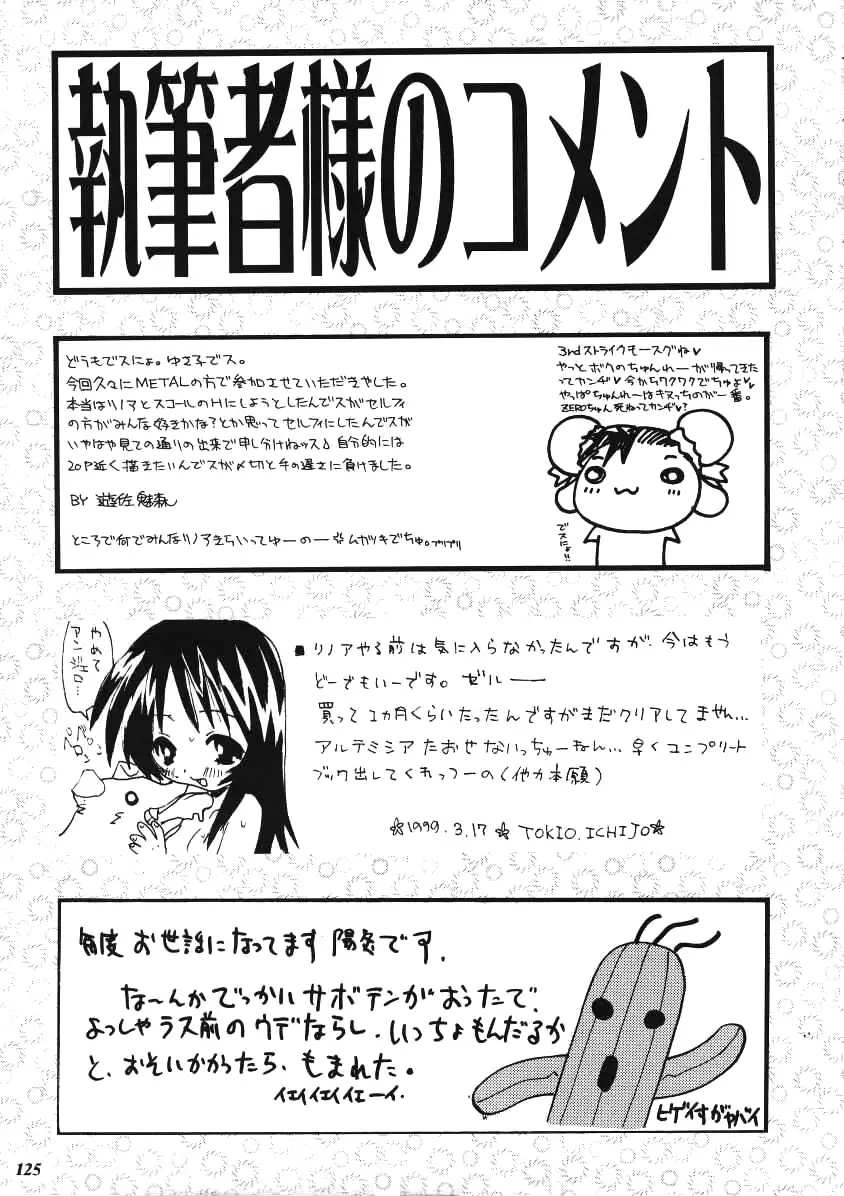 執筆者様のコメント
どうもでスにょ。ゆさ子でス。
今回久々にMETALの方で参加させていただきやした。
本当はリノアとスコールのHにしようとしたんでスがセルフィ
の方がみんな好きかな？とか思ってセルフィにしたんでスが
いやはや見ての通りの出来で申し分けねッス♪自分的には
20P近く描きたいんでスが〆切と手の遅さに負けました。
BY 遊佐魅森
ところで何でみんなリノアきらいってゆーのー ムガツキでちゅ。プリプリ
3rdストライクもースグね♥
やっとボクのちゅんれーが帰ってきた
ってカンヂ♥今からワクワクでちゅょ♥
やっぱちゅんれーはキヌっちのが一番。
ZEROちゅん死ねってカンヂ？
でスにょ!!
やめて
アンジェロ…
ペロン
■リノアやる前は気に入らなかったんですが、今はもう
どーでもいーです。ゼルー
買って1カ月くらいたったんですがまだクリアしてません…
アルテミシアたおせないっちゅーねん…早くコンプリート
ブック出してくれっつーの(他力本願)
☆1999.3.17☆ TOKIO.ICHIJO☆
毎度お世話になってます 陽炎です.
な〜んかでっかいサボテンがおったで、
よっしゃラス前のウデならし、いっちょもんだるか
と、おそいかかったら、もまれた。
イエイイエイイエーイ.
ヒゲイすがヤバイ
125